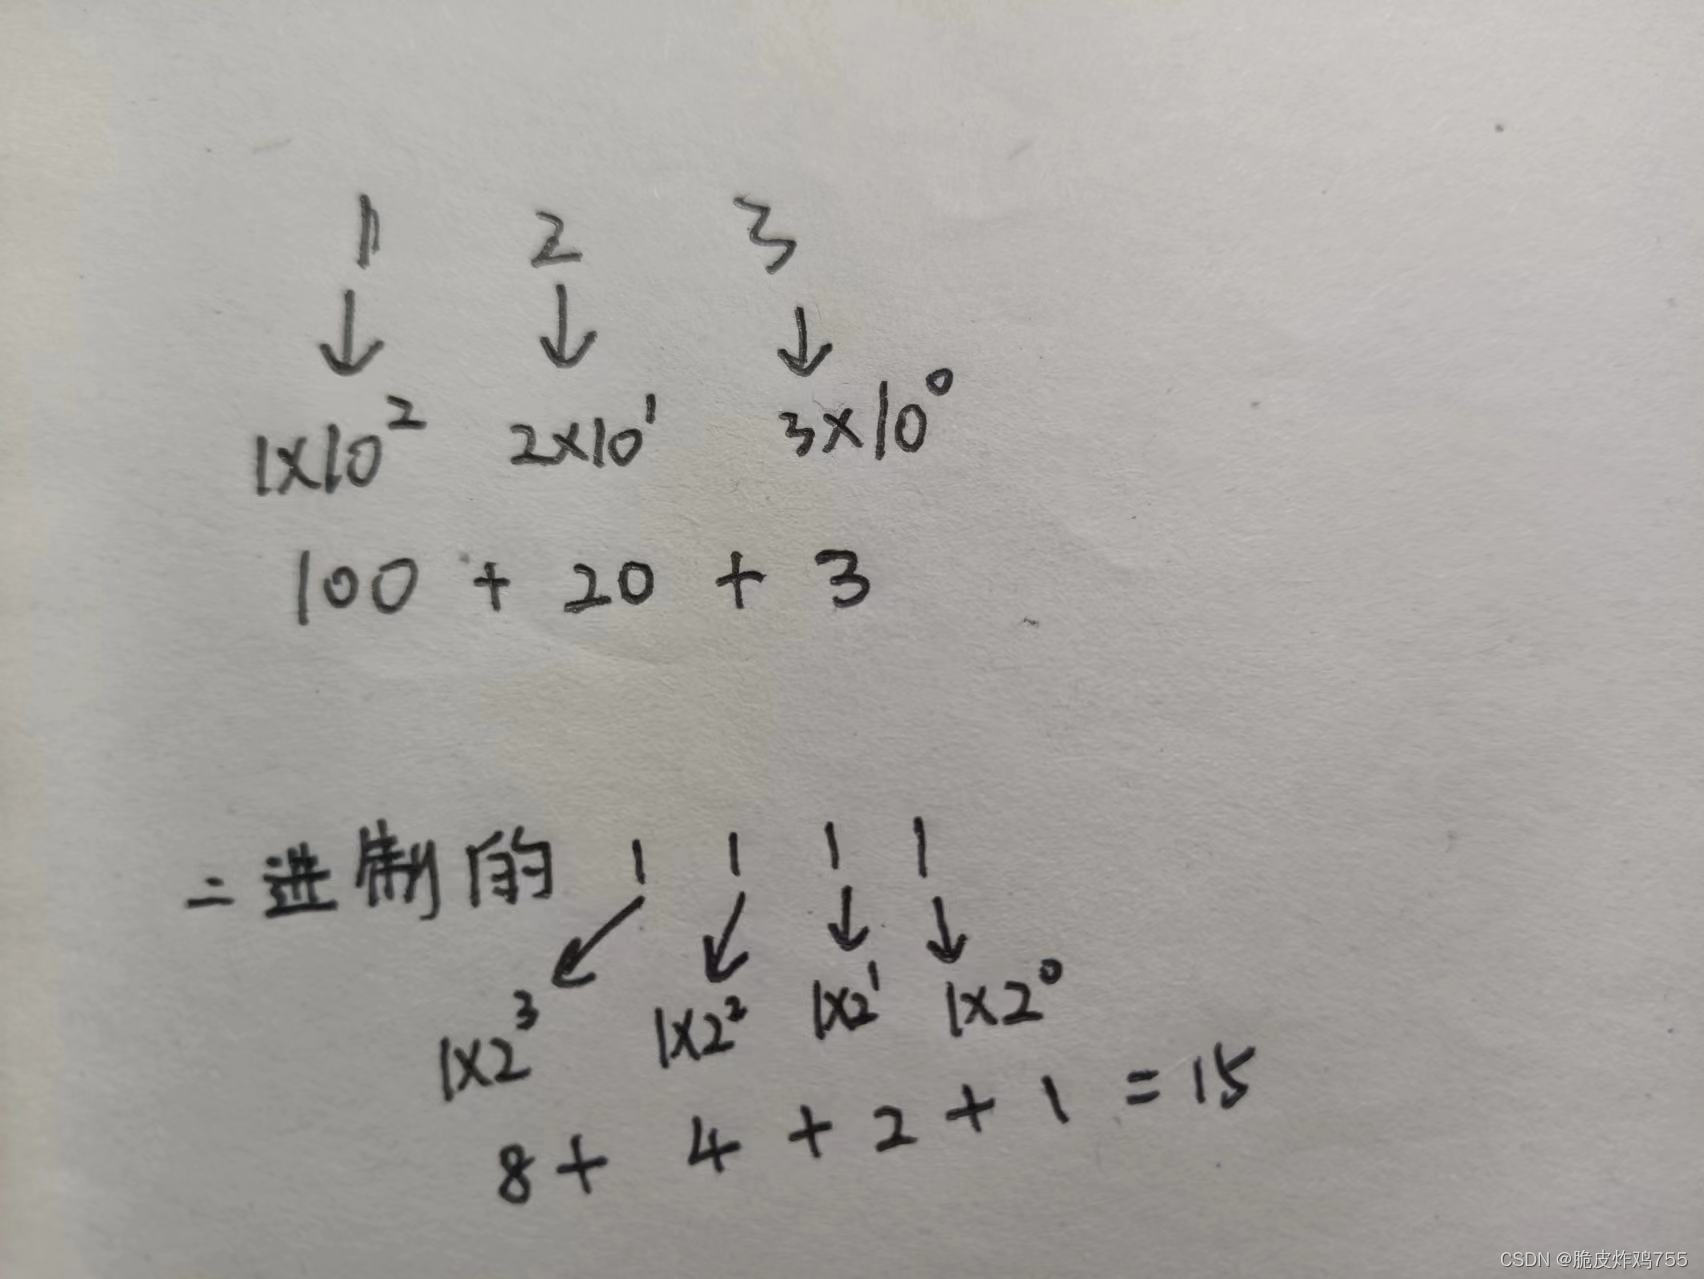 1 2 3
↓ ↓ ↓
1×10² 2×10¹ 3×10⁰
100 + 20 + 3
二进制的 1 1 1 1
↙ ↙ ↓ ↓
1×2³ 1×2² 1×2¹ 1×2⁰
8 + 4 + 2 + 1 = 15
CSDN @脆皮炸鸡755